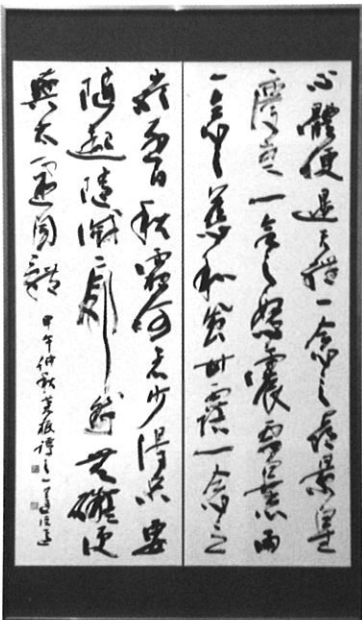 心體便是天體一念之喜景星
慶雲一念之怒震雷暴雨
一念之慈和風甘露一念之
嚴烈日秋霜何者少得只要
隨起隨滅廓然無礙便
與太虛同體 甲午仲秋菜根譚之一